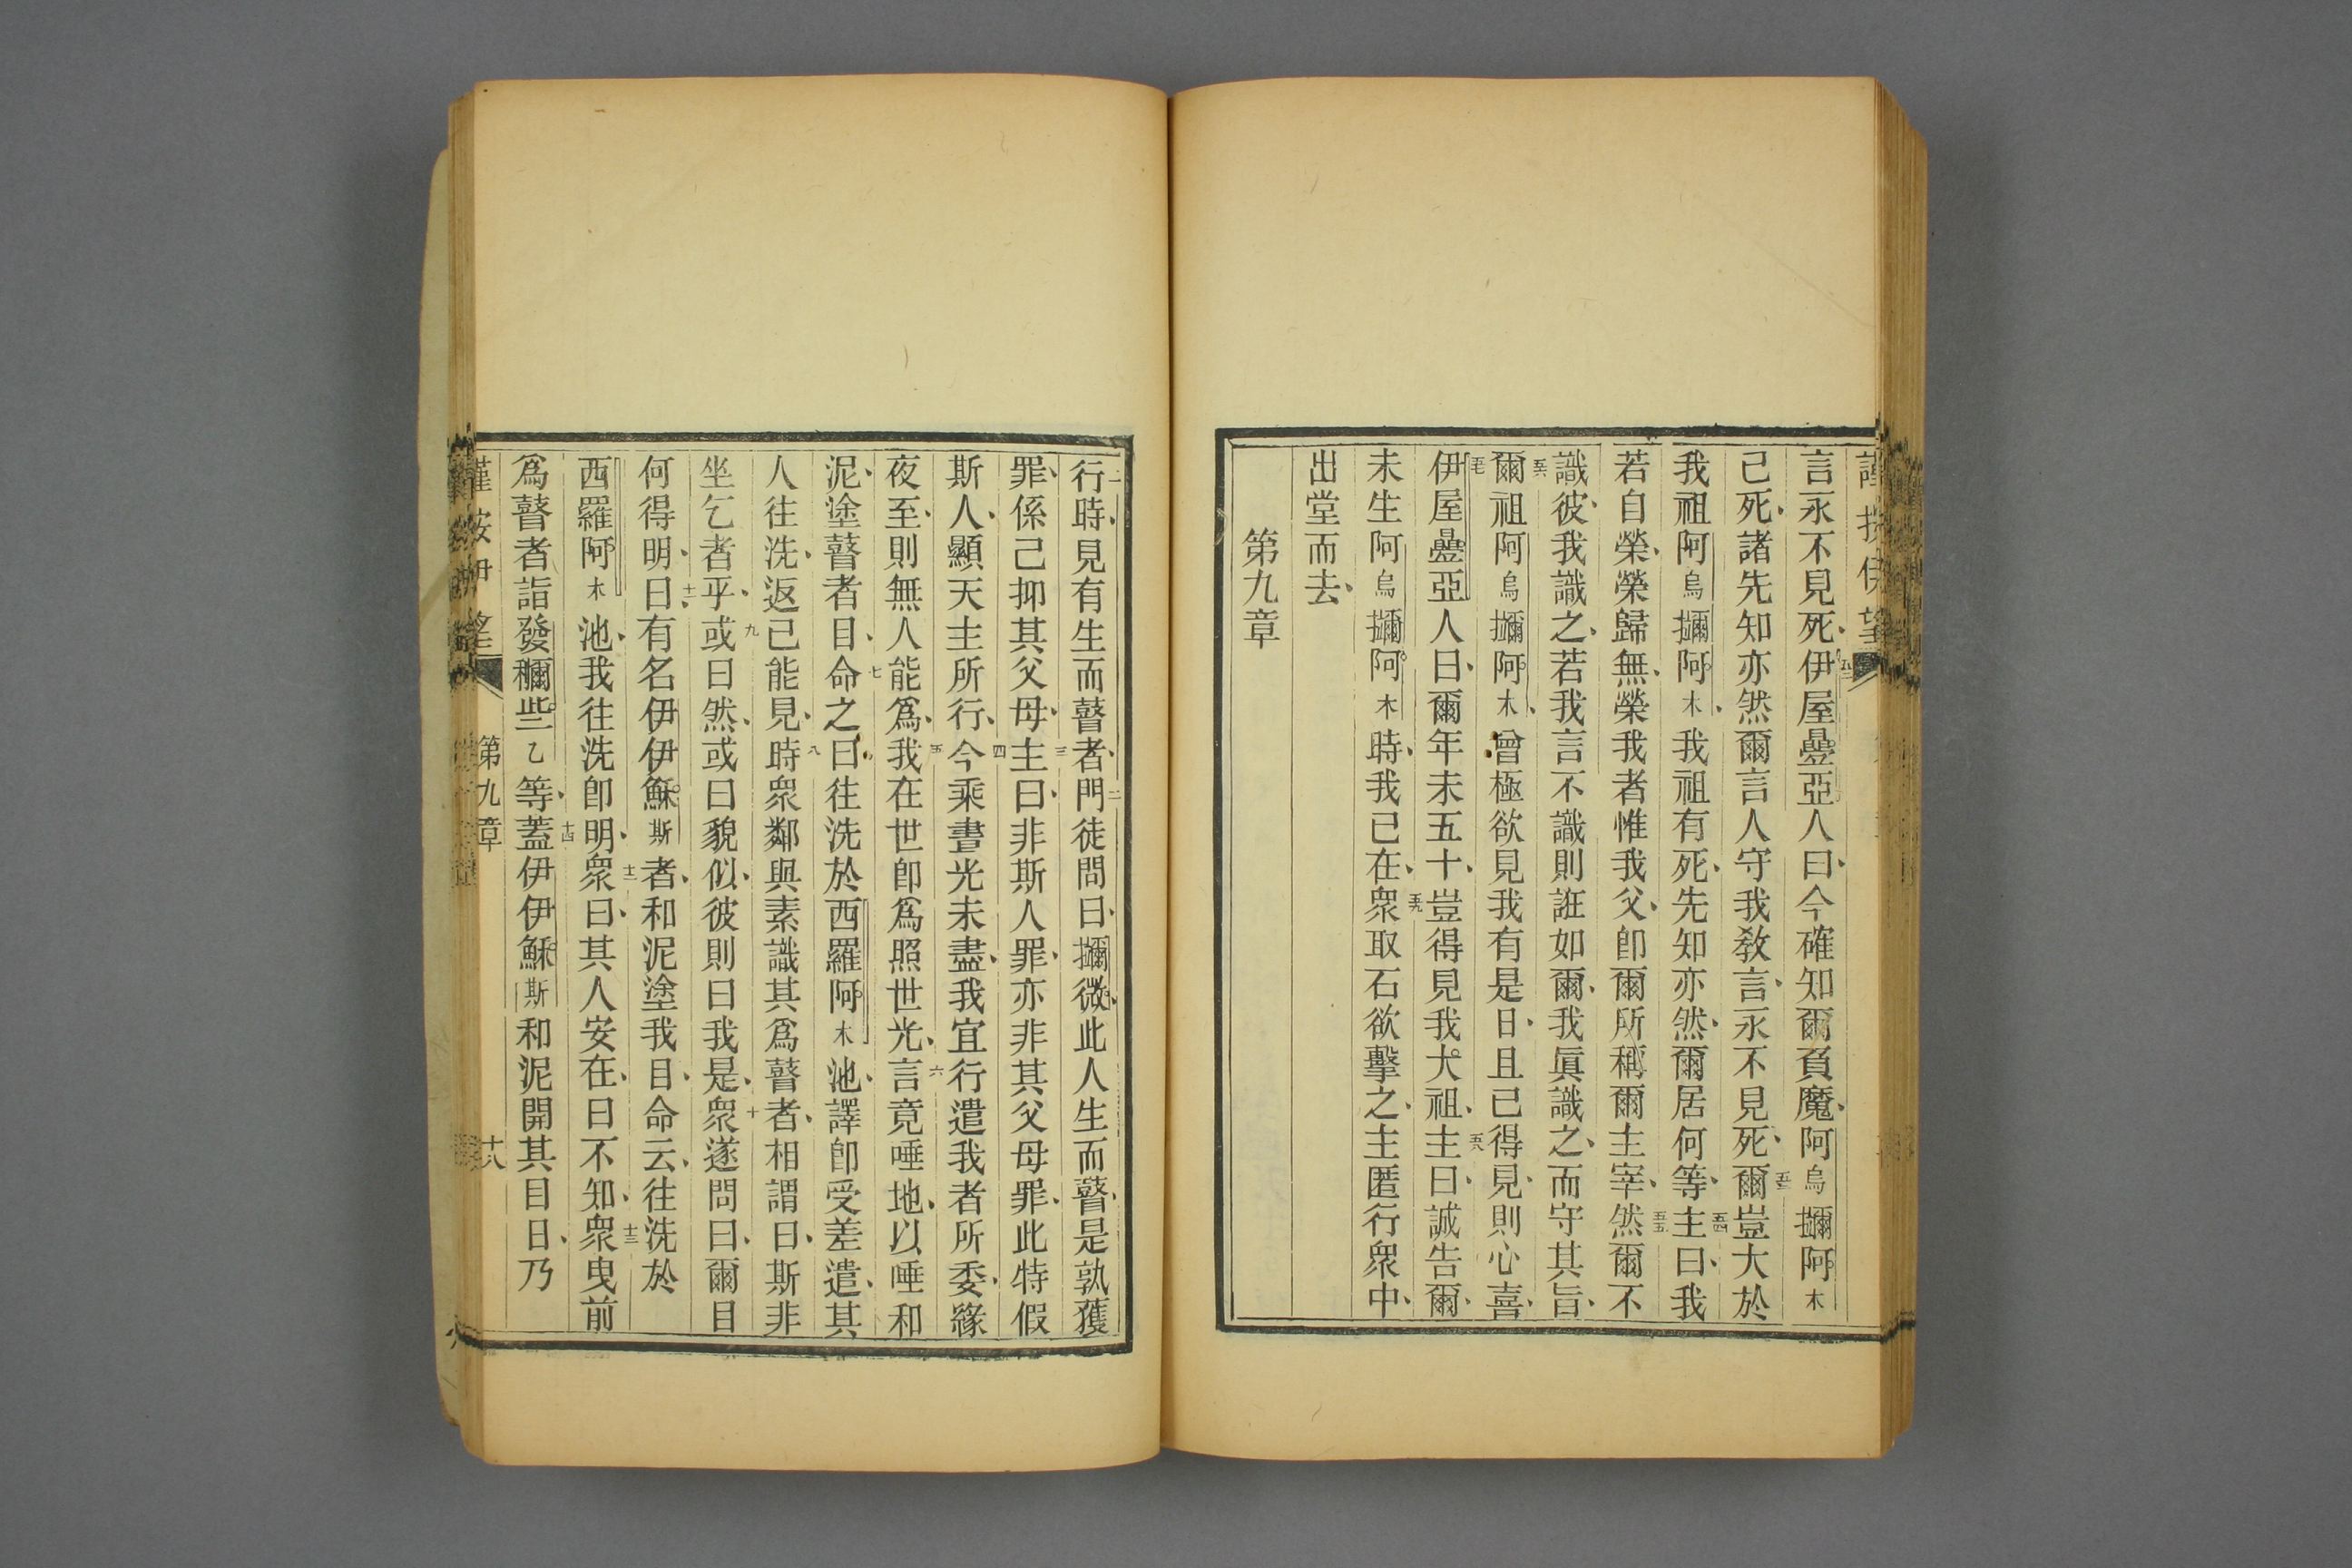 言永不見死伊屋疊亞人曰今確知爾負魔阿烏攡阿木
己死諸先知亦然爾言人守我敎言永不見死爾豈大於
我祖阿烏攡阿木我祖有死先知亦然爾居何等主曰我
若自榮榮歸無榮我者惟我父卽爾所稱爾主宰然爾不
識彼我識之若我言不識則誑如爾我眞識之而守其旨
爾祖阿烏攡阿木曾極欲見我有是日且已得見則心喜
伊屋疊亞人曰爾年未五十豈得見我大祖主曰誠告爾
未生阿烏攡阿木時我已在衆取石欲擊之主匿行衆中
出堂而去
第九章
行時見有生而瞽者門徒問曰攡微此人生而瞽是孰獲
罪係己抑其父母主曰非斯人罪亦非其父母罪此特假
斯人顯天主所行今乘晝光未盡我宜行遣我者所委緣
夜至則無人能爲我在世卽爲照世光言竟唾地以唾和
泥塗瞽者目命之曰往洗於西羅阿木池譯卽受差遣其
人往洗返己能見時衆鄰與素識其爲瞽者相謂曰斯非
坐乞者乎或曰然或曰貌似彼則曰我是衆遂問曰爾目
何得明曰有名伊伊穌斯者和泥塗我目命云往洗於
西羅阿木池我往洗卽明衆曰其人安在曰不知衆曳前
爲瞽者詣發穪些乙等蓋伊伊穌斯和泥開其目日乃
第九章
十八